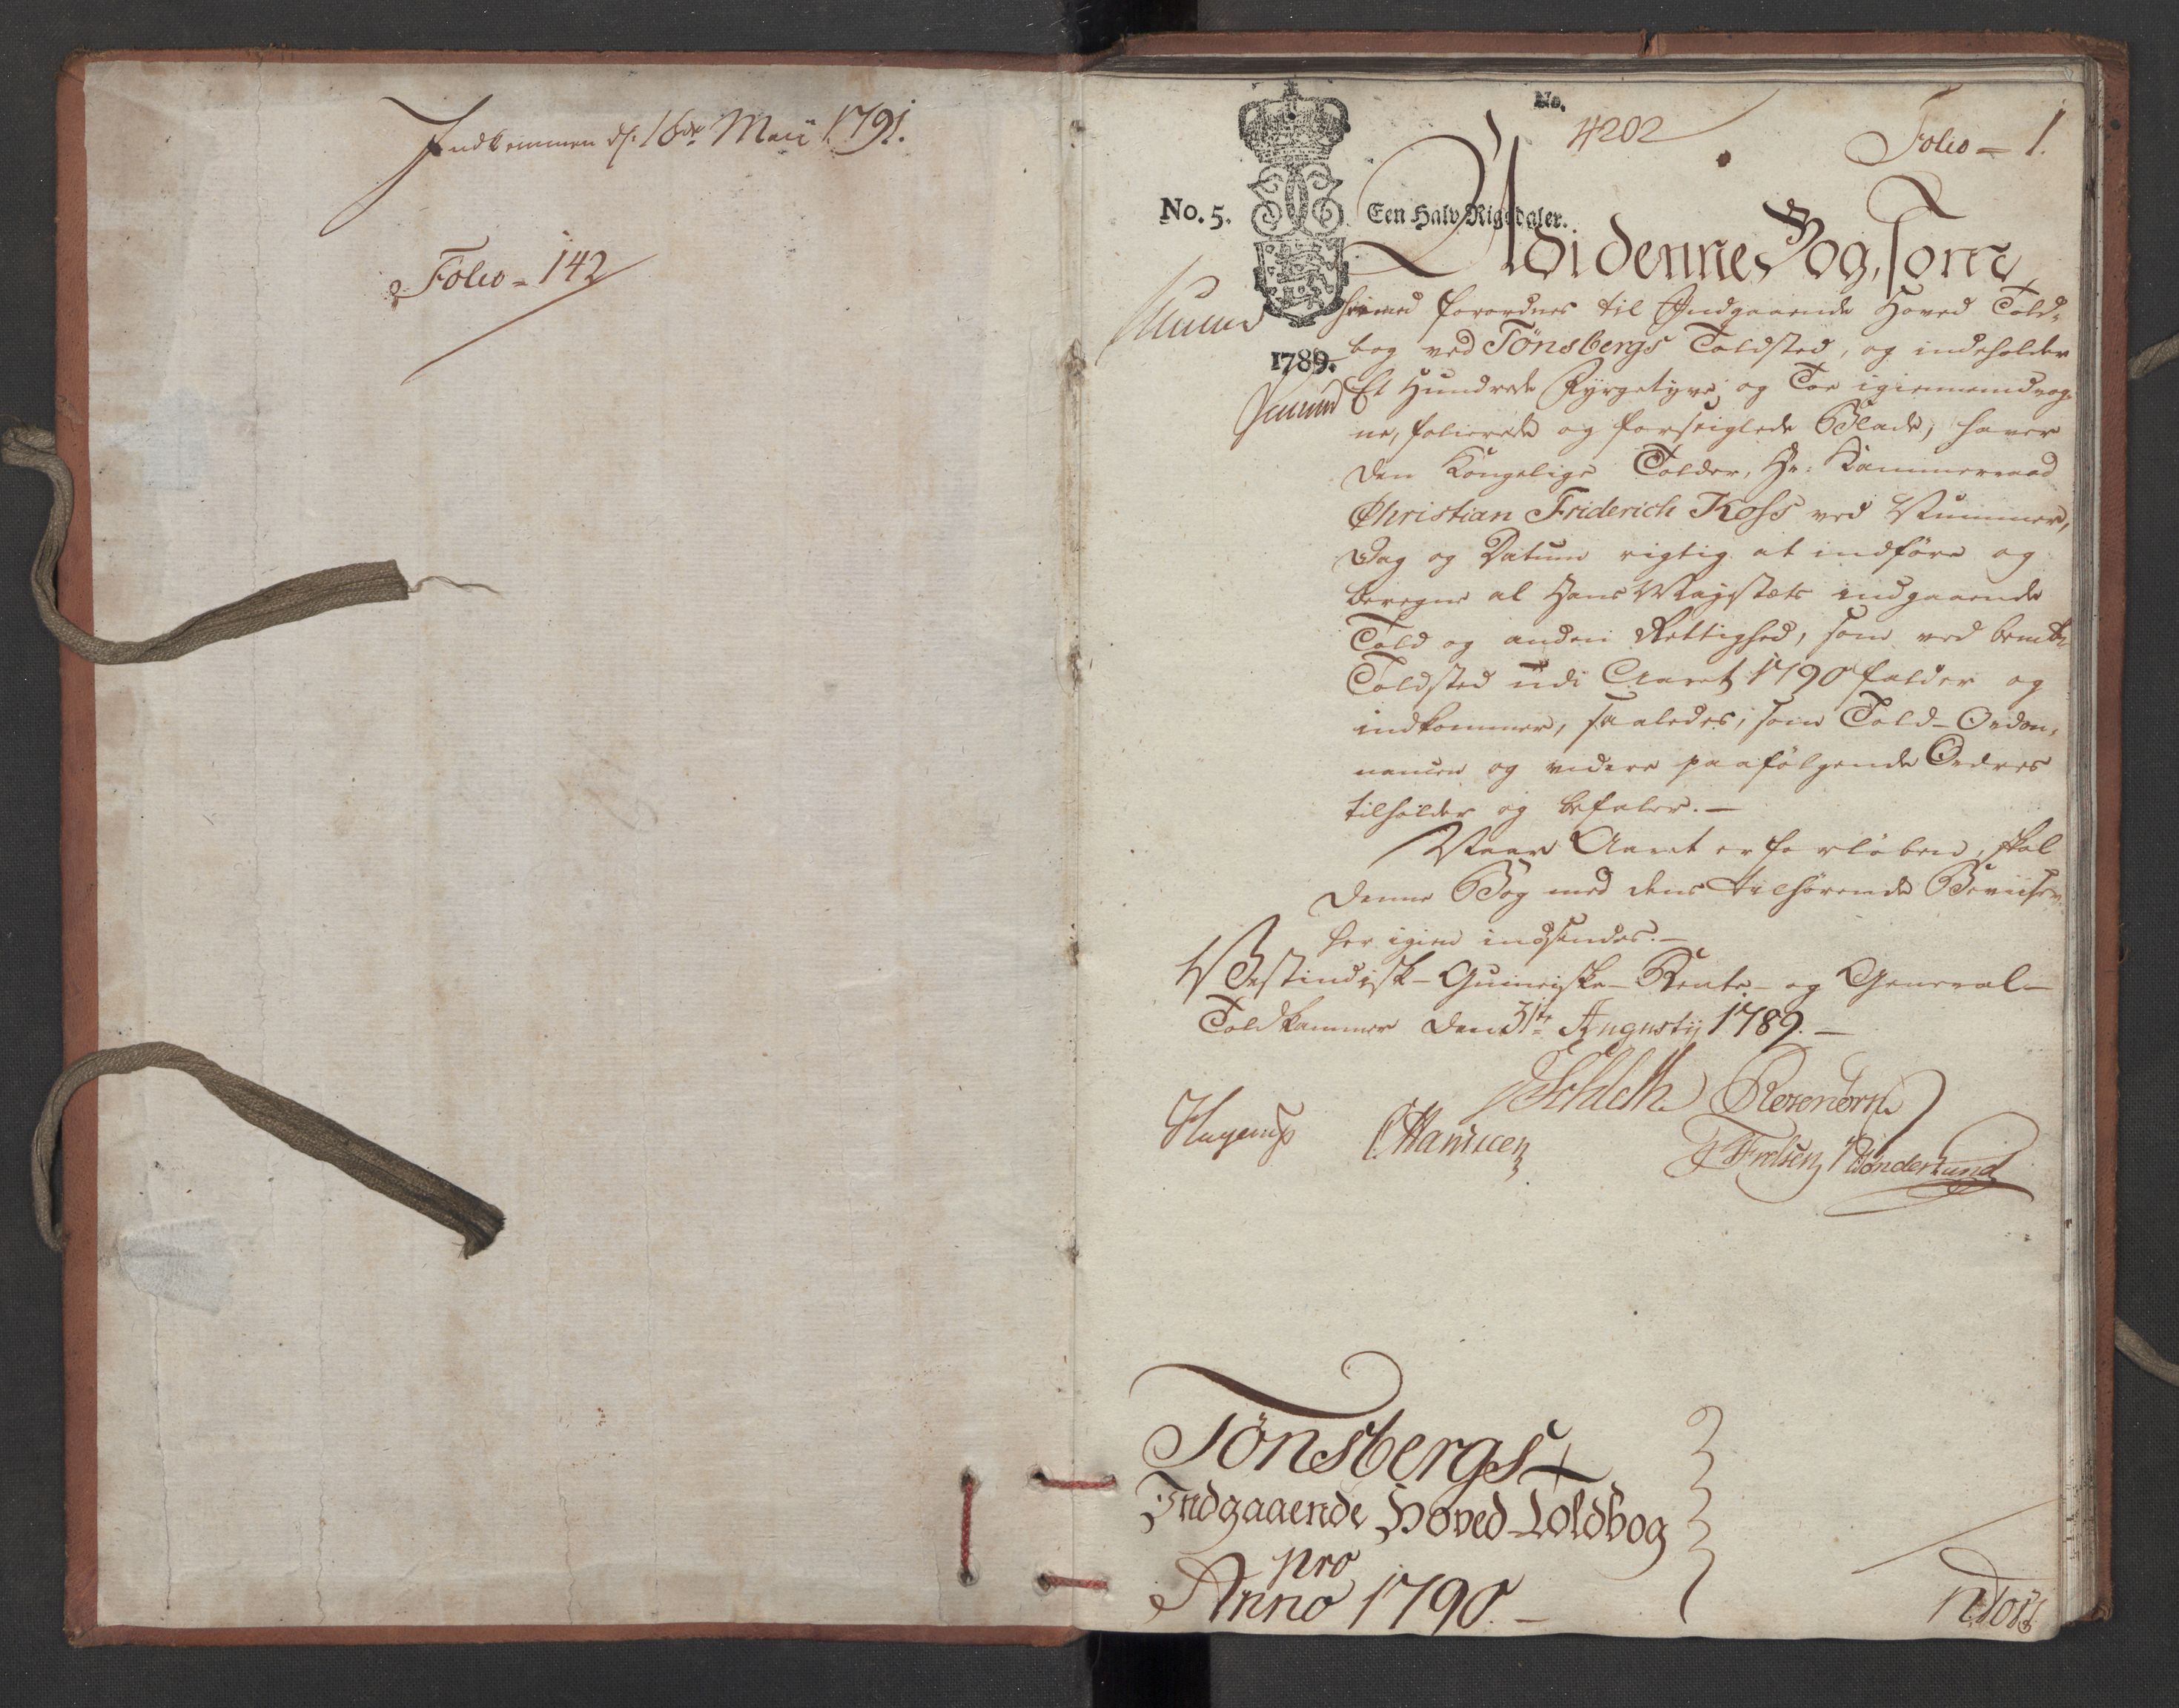 Indkommen d: 16de Maii 1791.
Folio = 142
No.
4202
Folio = 1.
No. 5.
Een Halv Rigsdaler.
1789.
Udi denne Bog, som
herved forordnes til Indgaaende Hoved Told=
bog ved Tönsbergs Toldsted, og indeholder
Et Hundrede Fyrgetyve og Toe igiennemdrag=
ne, folierede og forseiglede Blade, haver
den Kongelige Tolder, Hr: Kammerraad
Christian Friderich Koss ved Nummer,
Dag og Datum rigtig at indföre og
beregne al Hans Majestæts indgaaende
Told og anden Rettighed, som ved bemte
Toldsted udi Aaret 1790 falder og
indkommer, saaledes, som Told-Ordon=
nancen og videre paafölgende Ordres
tilholder og befaler. —
Naar Aaret er forlöben, skal
denne Bog med dens tilhörende Beviiser
her igien indsendes. —
Vestindisk-Guineiske-Rente- og General-
Toldkammer den 31te Augustij 1789. —
Rosenörn
Hagerup
Tönsbergs
Indgaaende Hoved-Toldbog
pro
Anno 1790. —